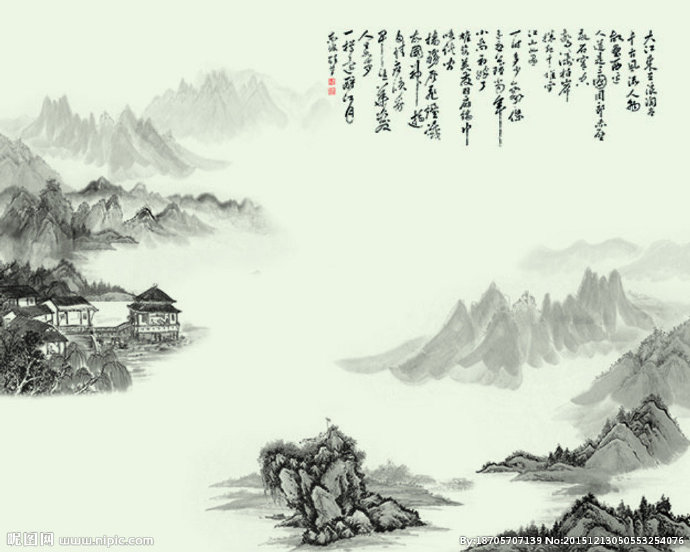 大江东去浪淘尽
千古風流人物
故壘西边
人道是三國周郎赤壁
乱石穿空
惊涛拍岸
江山如画
一时多少豪傑
小乔初嫁了
雄姿英发羽扇纶巾
故國神遊
多情应笑我
早生华发
人生如梦
一樽还酹江月
昵图网 www.nipic.com
By:18705707139 No:20151213050553254076